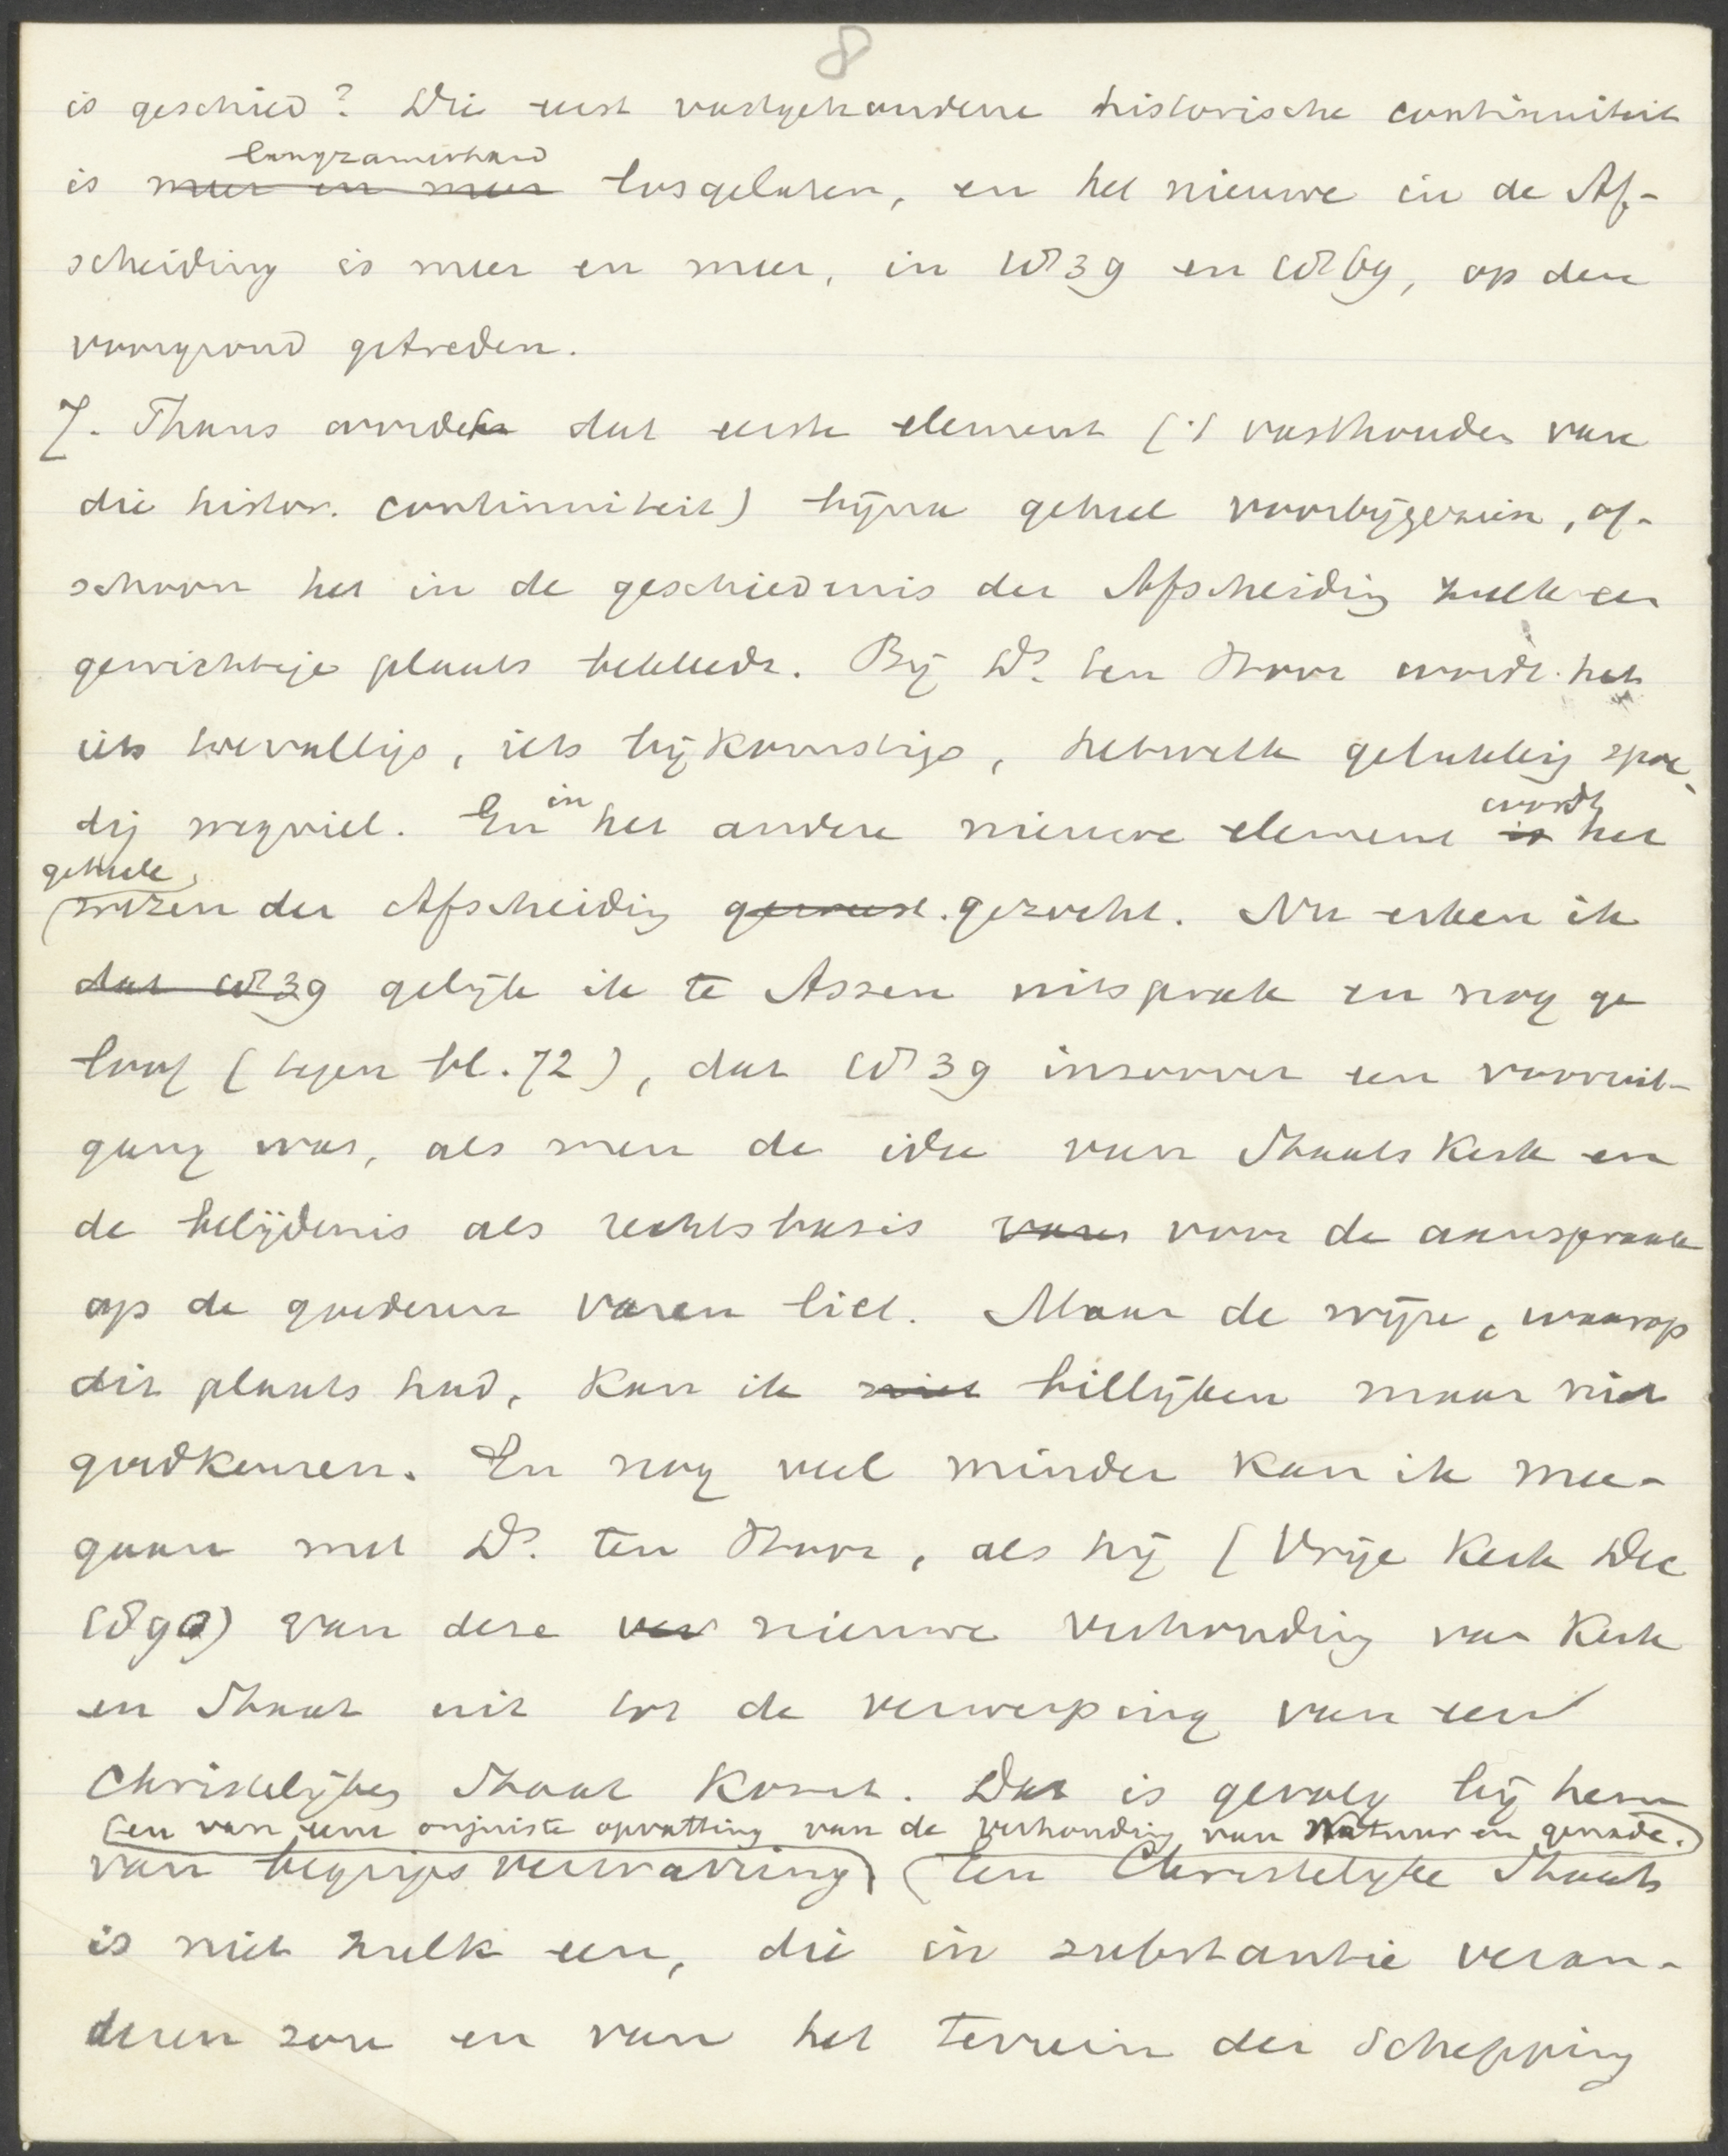 8
is geschied? Die eerst vastgehoudene historische continuiteit
langzamerhand
is meer en meer losgelaten, en het nieuwe in de Af-
scheiding is meer en meer, in 1839 en 1869, op den
voorgrond getreden.
7. Thans wordt dat eerste element ('t vasthouden van
die histor. continuiteit) bijna geheel voorbijgezien, of-
schoon het in de geschiedenis der Afscheiding zulk een
gewichtige plaats bekleedt. Bij Ds. ten Hoor wordt het
iets toevalligs, iets bijkomstigs, hetwelk gelukkig spoe-
in wordt
dig wegviel. En het andere nieuwe element is het
geheele
wezen der Afscheiding geweest. gezocht. Nu erken ik
dat 1839 gelijk ik te Assen uitsprak en nog ge
loof (tegen bl. 72), dat 1839 inzoover een vooruit-
gang was, als men de idee van Staatskerk en
de belijdenis als rechtsbasis voor de aanspraak
op de goederen varen liet. Maar de wijze, waarop
dit plaats had, kan ik niet billijken maar niet
goedkeuren. En nog veel minder kan ik mee-
gaan met Ds. ten Hoor, als hij (Vrije Kerk Dec
1890) van deze ver nieuwe verhouding van Kerk
en Staat uit tot de verwerping van een
Christelijken Staat komt. Dat is gevolg bij hem
en van eene onjuiste opvatting van de verhouding van Natuur en genade.
van begripsverwarring Een Christelijke Staat
is niet zulk een, die in substantie veran-
deren zou en van het terrein der Schepping